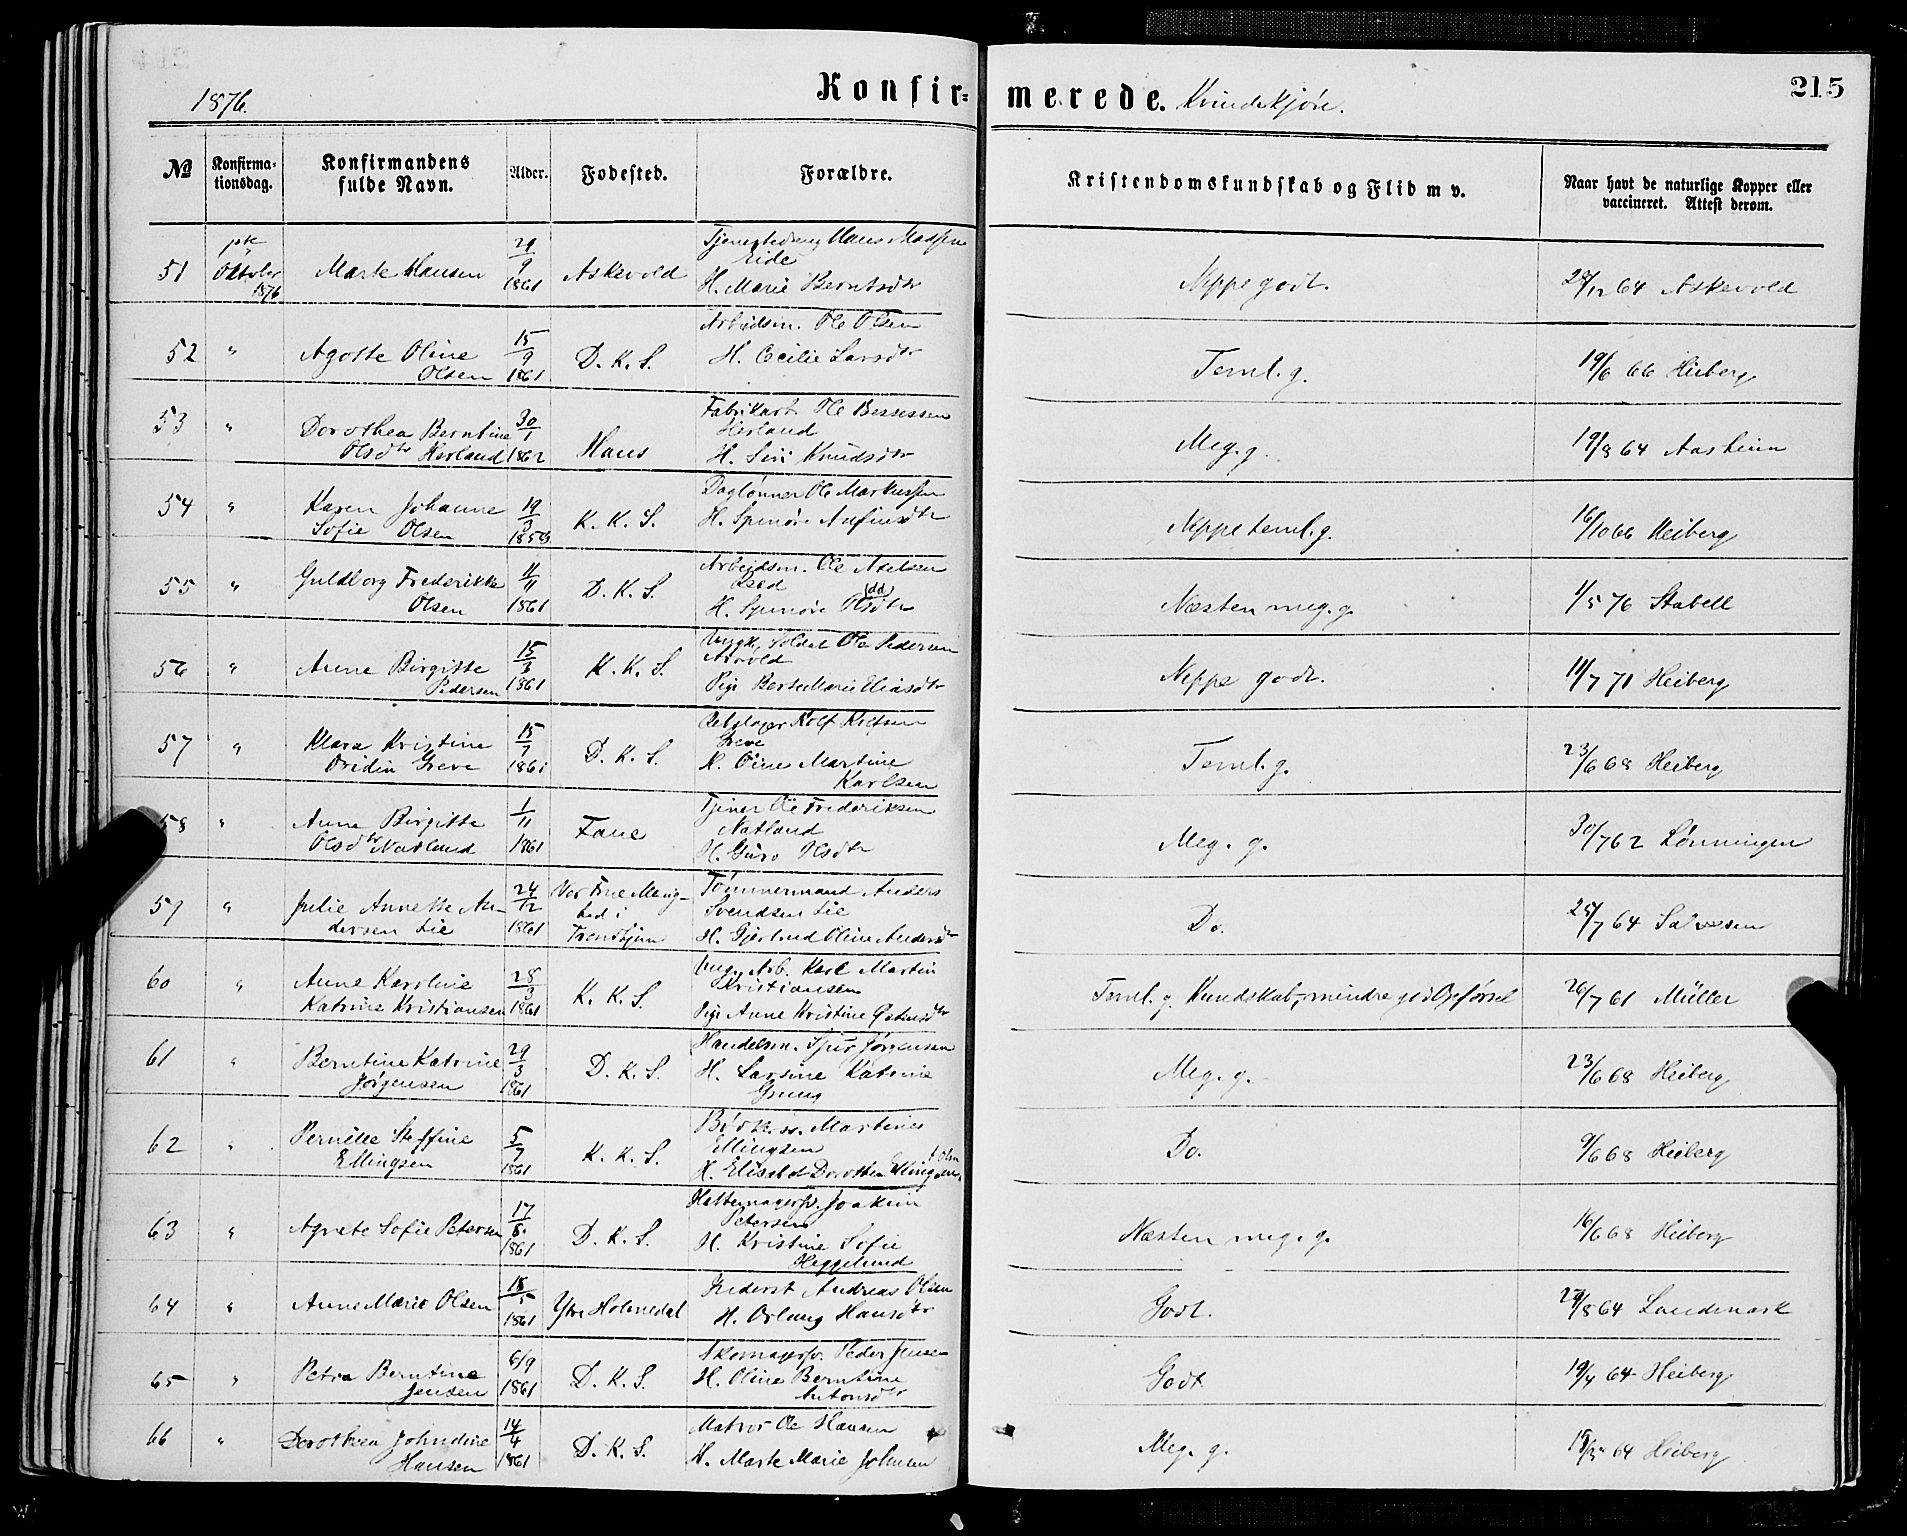 1876.
Konfir=
merede. Kvindekjøn.
215
No
Konfirma-
tionsdag.
Konfirmandens
fulde Navn.
Alder.
Fodested.
Forældre.
Kristendomskundskab og Flid m v.
Naar havt de naturlige Kopper eller
vaccineret. Attest derom.
51 Oktober 1876 Marte Hansen 29/9 1861 Askevold
Hans Madsen
Eide
H. Marie Berntsdtr
Neppe godt. 28/12 64 Askevold
52 " Agotte Oline
Olsen
15/9 1861 D. K. S.
Arbeidsm. Ole Olsen
H. Cecilie Larsdtr
Teml. g. 19/6 66 Heiberg
53 " Dorothea Berntine
Olsdtr Herland
30/1 1862 Haus
Fabrikarb. Ole Bessesen
Herland
H. Siri Knudsdtr
Meg. g. 19/8 64 Aasheim
54 " Karen Johanne
Sofie Olsen
19/3 K. K. S.
Daglønner Ole Markussen
H. Synnøve Anfinsdtr
Neppe teml. g. 16/10 66 Heiberg
55 " Guldborg Frederikke
Olsen
11/11 1861 D. K. S.
Arbeidsm. Ole
H. Synnøve Olsdtr (dd)
Næsten meg. g. 1/5 76 Stabell
56 " Anne Birgitte
Pedersen
15/3 1861 K. K. S.
Ungk. Soldat Ole Pedersen
Pige Berte Marie Eliasdtr
Neppe godt. 11/7 71 Heiberg
57 " Klara Kristine
Greve
15/7 1861 D. K. S.
Rolf Rolfsen
Greve
H. Oline Martine
Karlsen
Teml. g. 23/6 68 Heiberg
58 " Anne Birgitte
Olsdtr Natland
1/11 1861 Fane
Tjener Ole Frederiksen
Natland
H. Guro Olsdtr
Meg. g. 30/7 62 Lønningen
59 " Julie Annette An-
dersen Lie
24/12 1861 Vor Frue Menig-
hed i
Trondhjem
Tømmermand Anders
Svendsen Lie
H. Gjertrud Oline Andersdtr
Do. 25/7 64
60 " Anne Karoline
Katrine Kristiansen
28/3 1861 K. K. S.
Ung. Arb. Karl Martin
Kristiansen
Pige Anne Kristine
Teml. g. Kundskab, mindre god Opførsel 26/7 61 Müller
61 " Berntine Katrine
Jørgensen
29/3 1861 D. K. S.
Handelsm. Jørgensen
H. Larsine Katrine
Grung
Meg. g. 23/6 68 Heiberg
62 " Pernille Steffine
Ellingsen
5/7 1861 K. K. S.
Martinus
Ellingsen
H. Elisabet Dorothea Ellingsen
Do. 9/6 68 Heiberg
63 " Agnete Sofie Petersen 17/8 1861 D. K. S.
Hattemagersv. Joakim
Petersen
H. Kristine Sofie
Heggelund
Næsten meg. g. 16/6 68 Heiberg
64 " Anne Marie Olsen 18/5 1861 Ytre Holmedal
Inderst Andreas Olsen
H. Hansdtr
Godt. 29/8 64 Landmark
65 " Petra Berntine
Jensen
6/9 1861 D. K. S.
Skomagersv. Peder Jensen
H. Oline Berntine
Antonsdtr
Godt 19/4 64 Heiberg
66 " Dorothea Johndine
Hansen
14/4 1861 D. K. S.
Matros Ole Hansen
H. Marte Marie Johnsen
Meg. g. 64 Heiberg